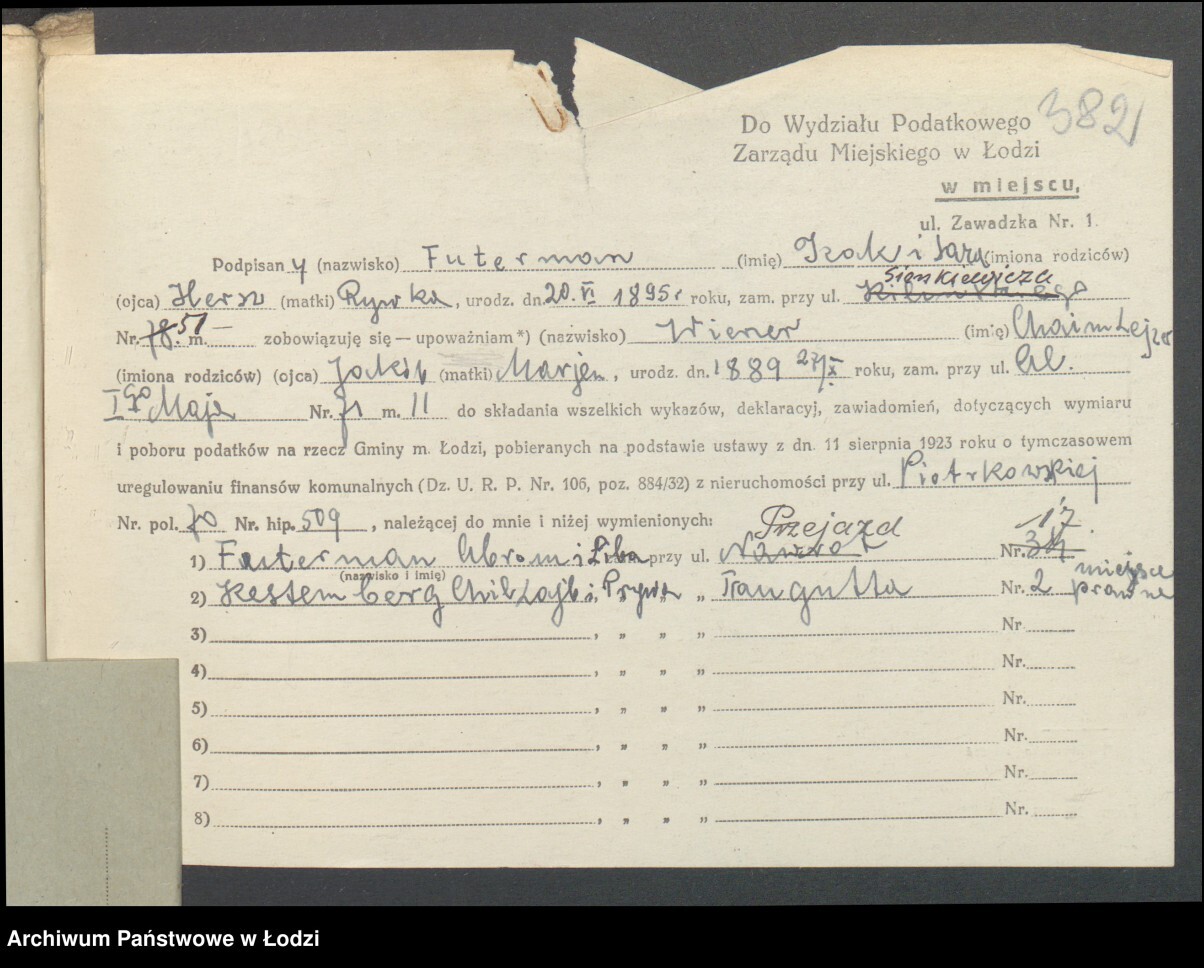 382
Do Wydziału Podatkowego
Zarządu Miejskiego w Łodzi
w miejscu,
ul. Zawadzka Nr. 1.
Podpisany (nazwisko) Futerman (imię) Izak i Sara (imiona rodziców)
Sienkiewicza
(ojca) Hersz (matki) Rywka, urodz. dn. 20. VI 1895 r roku, zam. przy ul. Kilińskiego
Nr. 78. 51 m. — zobowiązuję się — upoważniam *) (nazwisko) Wiener (imię) Chaim Lejzer
(imiona rodziców) (ojca) Jakób (matki) Marjem, urodz. dn. 1889 27/X roku, zam. przy ul. Al.
I go Maja Nr. 71 m. 11 do składania wszelkich wykazów, deklaracyj, zawiadomień, dotyczących wymiaru
i poboru podatków na rzecz Gminy m. Łodzi, pobieranych na podstawie ustawy z dn. 11 sierpnia 1923 roku o tymczasowem
uregulowaniu finansów komunalnych (Dz. U. R. P. Nr. 106, poz. 884/32) z nieruchomości przy ul. Piotrkowskiej
Nr. pol. 70 Nr. hip. 509, należącej do mnie i niżej wymienionych:
Przejazd 17
1) Futerman Abram i Liba przy ul. Nawrot Nr. 34
(nazwisko i imię)
2) Kestemberg Chil Lajb i Prywa „ „ Traugutta Nr. 2 miejsce prawne
3) , „ „ „ Nr.
4) , „ „ „ Nr.
5) , „ „ „ Nr.
6) , „ „ „ Nr.
7) , „ „ „ Nr.
8) , „ „ „ Nr.
Archiwum Państwowe w Łodzi